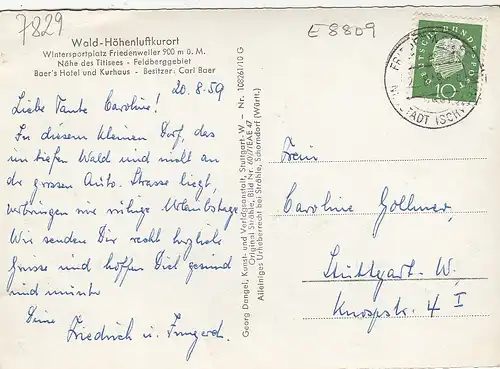 7829
E 8809
Wald-Höhenluftkurort
Wintersportplatz Friedenweiler 900 m ü. M.
Nähe des Titisees - Feldberggebiet
Baer's Hotel und Kurhaus - Besitzer: Carl Baer
20.8.59
Liebe Tante Caroline!
In diesem kleinen Dorf, das
im tiefen Wald und nicht an
der grossen Auto-Strasse liegt,
verbringen wir ruhige Urlaubstage
Wir senden Dir recht herzliche
Grüsse und hoffen Dich gesund
und munter
Deine Friedrich u. Irmgard.
Georg Dengel, Kunst- und Verlagsanstalt, Stuttgart-W. - Nr. 108261/10 G
Original Strähle, Bild Nr. 602/7EAE 47
Alleiniger Urheberrecht bei Strähle, Schorndorf (Württ.)
DEUTSCHE BUNDESPOST
10
NEUSTADT (SCHW
Frau
Caroline Gollmer,
Stuttgart-W.
Knospstr. 4 I